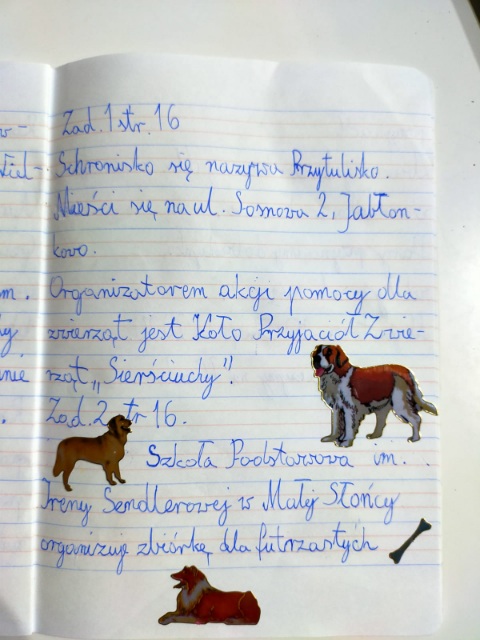 Zad. 1 str. 16
Schronisko się nazywa Przytulisko.
Mieści się na ul. Sosnowa 2, Jabłon-
kowo.
Organizatorem akcji pomocy dla
zwierząt jest Koło Przyjaciół Zwie-
rząt „Sierściuchy".
Zad. 2 tr 16.
Szkoła Podstawowa im.
Ireny Sendlerowej w Małej Słońcy
organizuję zbiórkę dla futrzastych